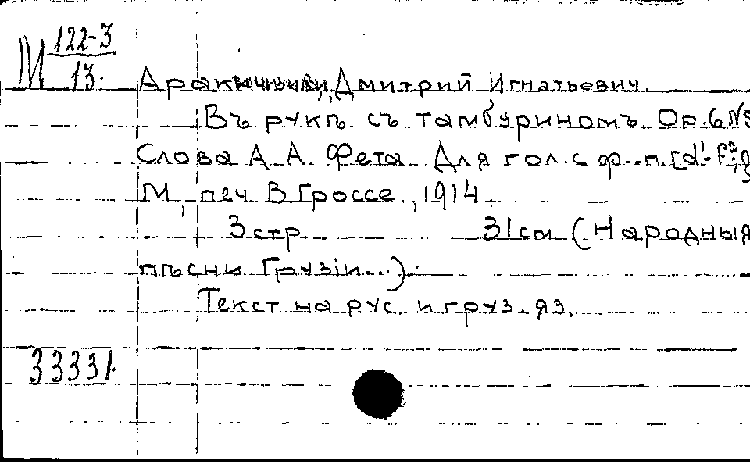 М 122-3
13.
Аракчиев, Дмитрий Игнатьевич.
Въ рукѣ съ тамбуриномъ. Ор. 6 №
Слова А. А. Фета. Для гол. с ф.-п. [d'-
М., печ. В. Гроссе, 1914.
3 стр. 31 см (Народныя
пѣсни Грузіи...).
Текст на рус. и груз. яз.
33331.